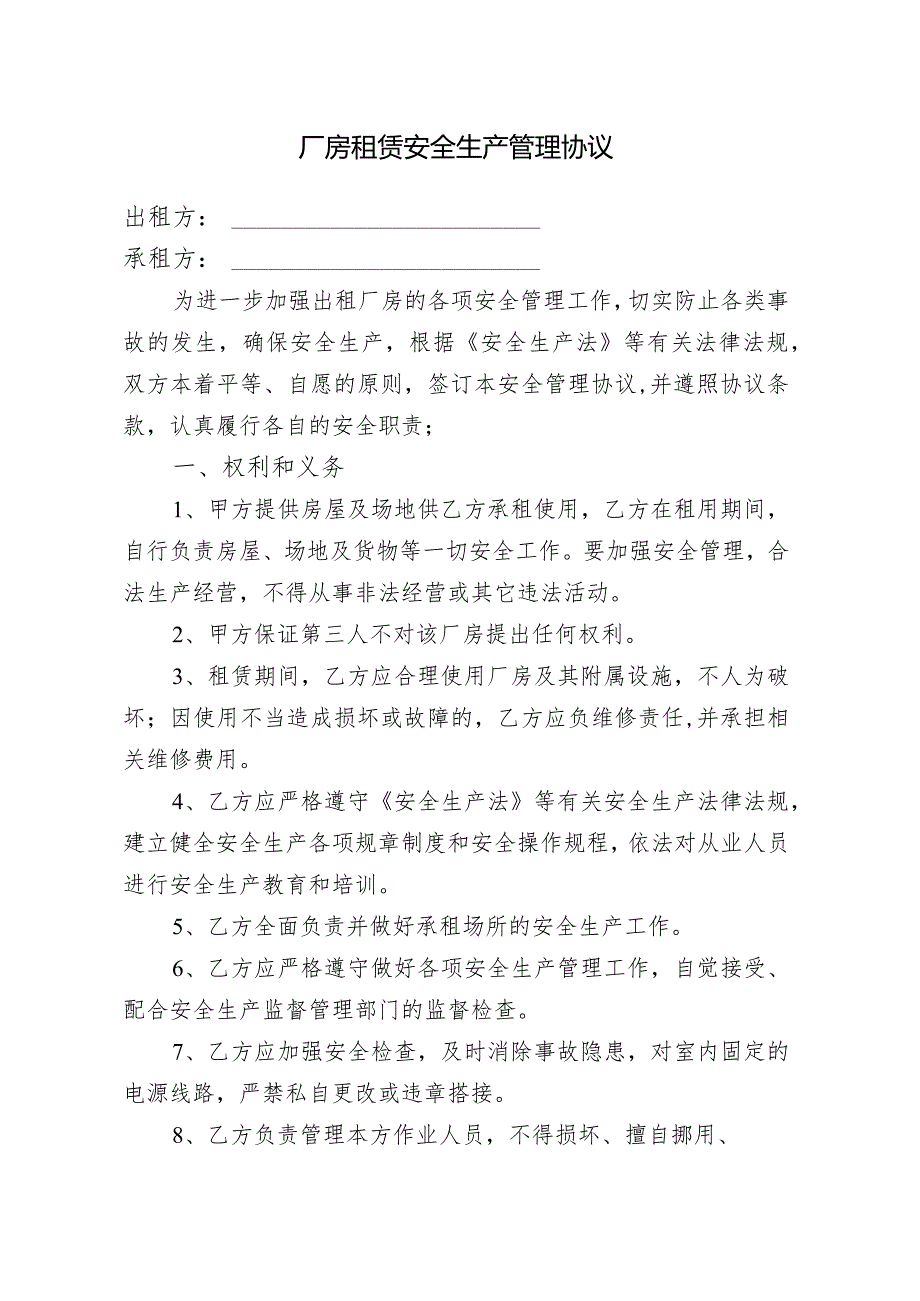 厂房租赁安全生产管理协议
出租方： _________________________
承租方： _________________________
为进一步加强出租厂房的各项安全管理工作,切实防止各类事
故的发生，确保安全生产，根据《安全生产法》等有关法律法规，
双方本着平等、自愿的原则，签订本安全管理协议,并遵照协议条
款，认真履行各自的安全职责；
一、权利和义务
1、甲方提供房屋及场地供乙方承租使用，乙方在租用期间，
自行负责房屋、场地及货物等一切安全工作。要加强安全管理，合
法生产经营，不得从事非法经营或其它违法活动。
2、甲方保证第三人不对该厂房提出任何权利。
3、租赁期间，乙方应合理使用厂房及其附属设施，不人为破
坏；因使用不当造成损坏或故障的，乙方应负维修责任,并承担相
关维修费用。
4、乙方应严格遵守《安全生产法》等有关安全生产法律法规，
建立健全安全生产各项规章制度和安全操作规程，依法对从业人员
进行安全生产教育和培训。
5、乙方全面负责并做好承租场所的安全生产工作。
6、乙方应严格遵守做好各项安全生产管理工作，自觉接受、
配合安全生产监督管理部门的监督检查。
7、乙方应加强安全检查，及时消除事故隐患，对室内固定的
电源线路，严禁私自更改或违章搭接。
8、乙方负责管理本方作业人员，不得损坏、擅自挪用、